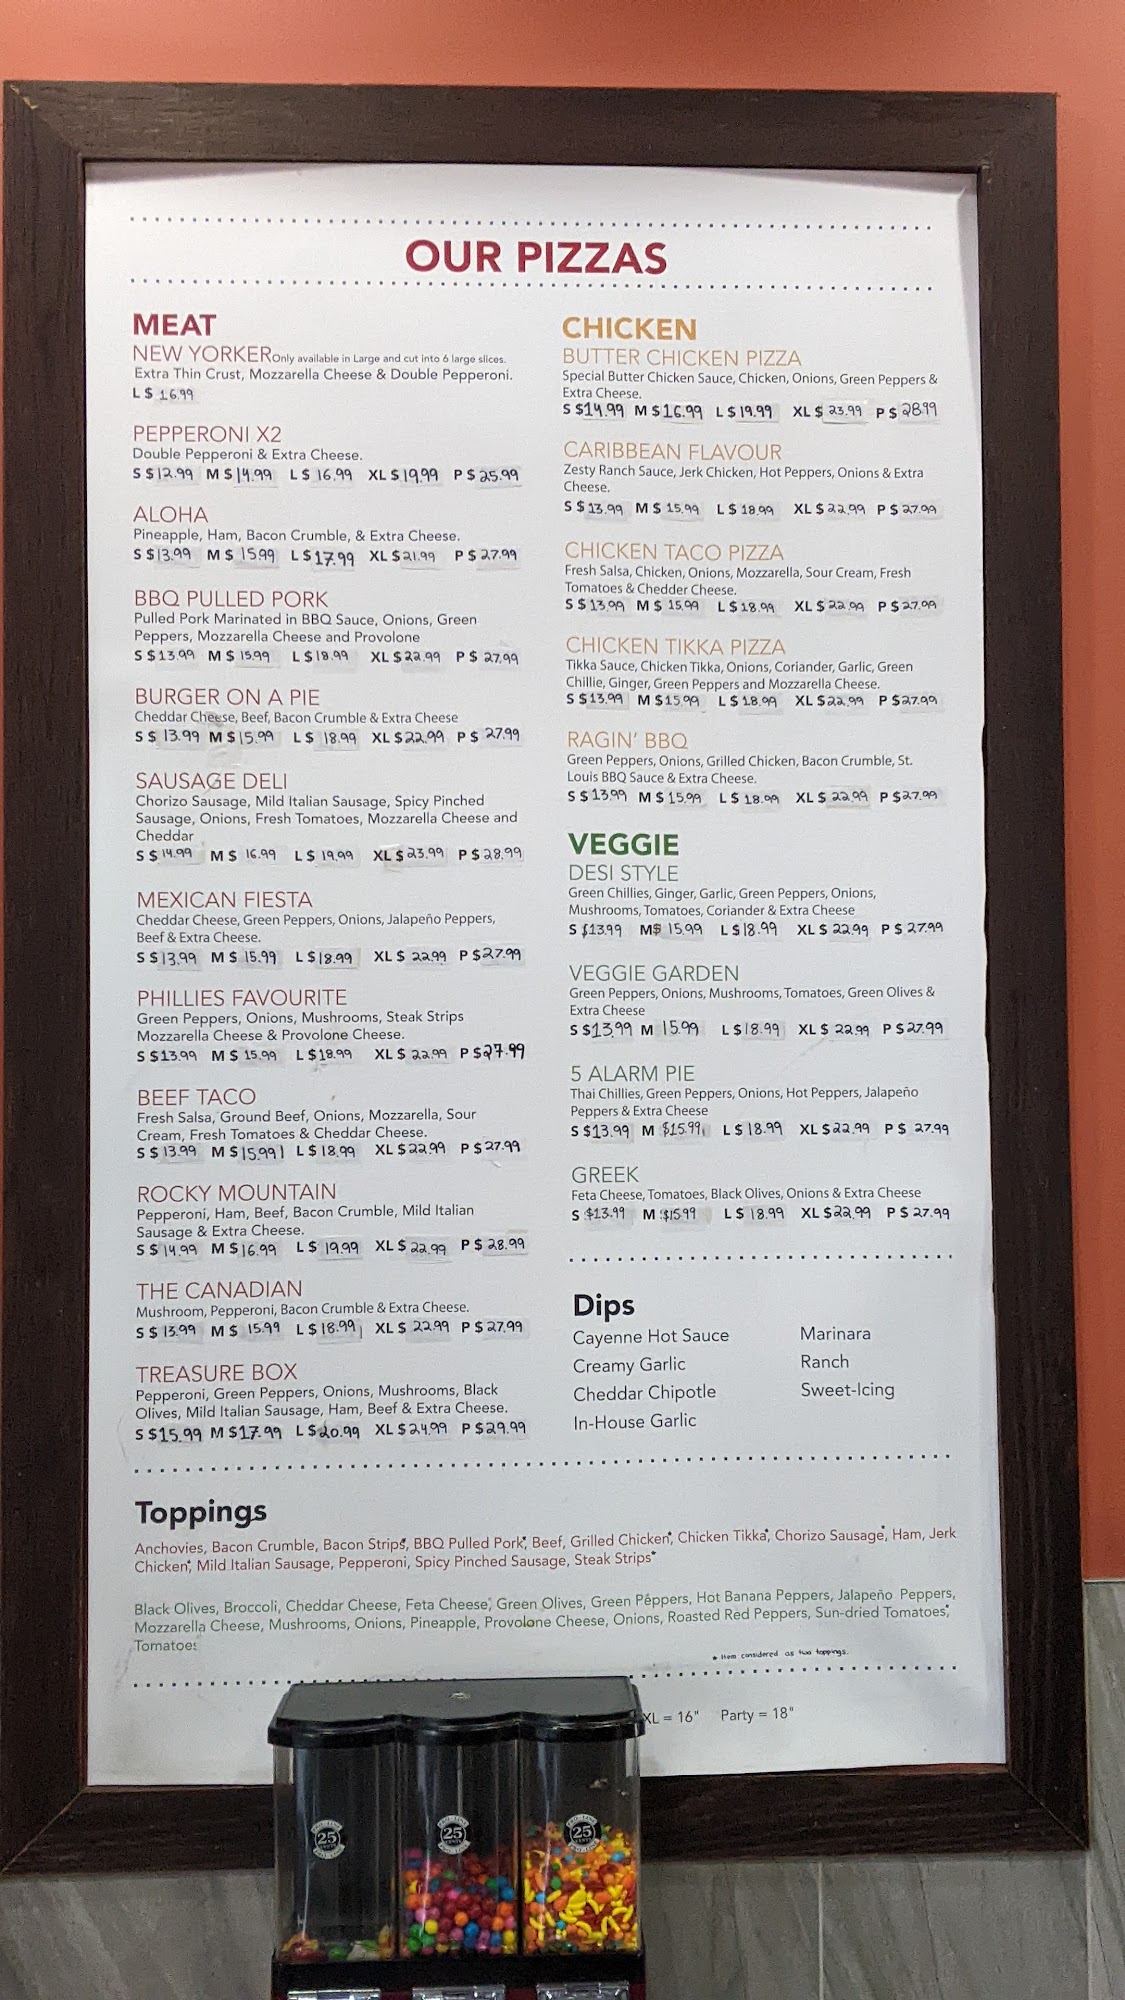 OUR PIZZAS
MEAT
NEW YORKER Only available in Large and cut into 6 large slices.
Extra Thin Crust, Mozzarella Cheese & Double Pepperoni.
L $ 16.99
PEPPERONI X2
Double Pepperoni & Extra Cheese.
S $12.99 M $14.99 L $ 16.99 XL $19.99 P $25.99
ALOHA
Pineapple, Ham, Bacon Crumble, & Extra Cheese.
S $13.99 M $ 15.99 L $17.99 XL $21.99 P $27.99
BBQ PULLED PORK
Pulled Pork Marinated in BBQ Sauce, Onions, Green
Peppers, Mozzarella Cheese and Provolone
S $13.99 M $ 15.99 L $18.99 XL $22.99 P $ 27.99
BURGER ON A PIE
Cheddar Cheese, Beef, Bacon Crumble & Extra Cheese
S $ 13.99 M $15.99 L $ 18.99 XL $22.99 P $ 27.99
SAUSAGE DELI
Chorizo Sausage, Mild Italian Sausage, Spicy Pinched
Sausage, Onions, Fresh Tomatoes, Mozzarella Cheese and
Cheddar
S $ 14.99 M $ 16.99 L $ 19.99 XL $23.99 P $28.99
MEXICAN FIESTA
Cheddar Cheese, Green Peppers, Onions, Jalapeño Peppers,
Beef & Extra Cheese.
S $13.99 M $ 15.99 L $18.99 XL $ 22.99 P $27.99
PHILLIES FAVOURITE
Green Peppers, Onions, Mushrooms, Steak Strips
Mozzarella Cheese & Provolone Cheese.
S $13.99 M $ 15.99 L $18.99 XL $ 22.99 P $27.99
BEEF TACO
Fresh Salsa, Ground Beef, Onions, Mozzarella, Sour
Cream, Fresh Tomatoes & Cheddar Cheese.
S $ 13.99 M $15.99 L $18.99 XL $22.99 P $27.99
ROCKY MOUNTAIN
Pepperoni, Ham, Beef, Bacon Crumble, Mild Italian
Sausage & Extra Cheese.
S $ 14.99 M $16.99 L $ 19.99 XL $ 22.99 P $ 28.99
THE CANADIAN
Mushroom, Pepperoni, Bacon Crumble & Extra Cheese.
S $ 13.99 M $ 15.99 L $18.99 XL $ 22.99 P $27.99
TREASURE BOX
Pepperoni, Green Peppers, Onions, Mushrooms, Black
Olives, Mild Italian Sausage, Ham, Beef & Extra Cheese.
S $15.99 M $17.99 L $20.99 XL $24.99 P $29.99
CHICKEN
BUTTER CHICKEN PIZZA
Special Butter Chicken Sauce, Chicken, Onions, Green Peppers &
Extra Cheese.
S $14.99 M $16.99 L $19.99 XL $ 23.99 P $ 28.99
CARIBBEAN FLAVOUR
Zesty Ranch Sauce, Jerk Chicken, Hot Peppers, Onions & Extra
Cheese.
S $ 13.99 M $ 15.99 L $ 18.99 XL $22.99 P $ 27.99
CHICKEN TACO PIZZA
Fresh Salsa, Chicken, Onions, Mozzarella, Sour Cream, Fresh
Tomatoes & Chedder Cheese.
S $ 13.99 M $ 15.99 L $18.99 XL $ 22.99 P $27.99
CHICKEN TIKKA PIZZA
Tikka Sauce, Chicken Tikka, Onions, Coriander, Garlic, Green
Chillie, Ginger, Green Peppers and Mozzarella Cheese.
S $13.99 M $15.99 L $ 18.99 XL $22.99 P $27.99
RAGIN' BBQ
Green Peppers, Onions, Grilled Chicken, Bacon Crumble, St.
Louis BBQ Sauce & Extra Cheese.
S $13.99 M $15.99 L $ 18.99 XL $ 22.99 P $27.99
VEGGIE
DESI STYLE
Green Chillies, Ginger, Garlic, Green Peppers, Onions,
Mushrooms, Tomatoes, Coriander & Extra Cheese
S $13.99 M$ 15.99 L $18.99 XL $ 22.99 P $ 27.99
VEGGIE GARDEN
Green Peppers, Onions, Mushrooms, Tomatoes, Green Olives &
Extra Cheese
S $13.99 M 15.99 L $18.99 XL $ 22.99 P $27.99
5 ALARM PIE
Thai Chillies, Green Peppers, Onions, Hot Peppers, Jalapeño
Peppers & Extra Cheese
S $13.99 M $15.99 L $18.99 XL $22.99 P $ 27.99
GREEK
Feta Cheese, Tomatoes, Black Olives, Onions & Extra Cheese
S $13.99 M $15.99 L $ 18.99 XL $22.99 P $ 27.99
Dips
Cayenne Hot Sauce
Creamy Garlic
Cheddar Chipotle
In-House Garlic
Marinara
Ranch
Sweet-Icing
Toppings
Anchovies, Bacon Crumble, Bacon Strips*, BBQ Pulled Pork*, Beef, Grilled Chicken*, Chicken Tikka*, Chorizo Sausage*, Ham, Jerk
Chicken*, Mild Italian Sausage, Pepperoni, Spicy Pinched Sausage, Steak Strips*
Black Olives, Broccoli, Cheddar Cheese, Feta Cheese*, Green Olives, Green Peppers, Hot Banana Peppers, Jalapeño Peppers,
Mozzarella Cheese, Mushrooms, Onions, Pineapple, Provolone Cheese, Onions, Roasted Red Peppers, Sun-dried Tomatoes*,
Tomatoes
* Item considered as two toppings.
XL = 16" Party = 18"
25
25
25